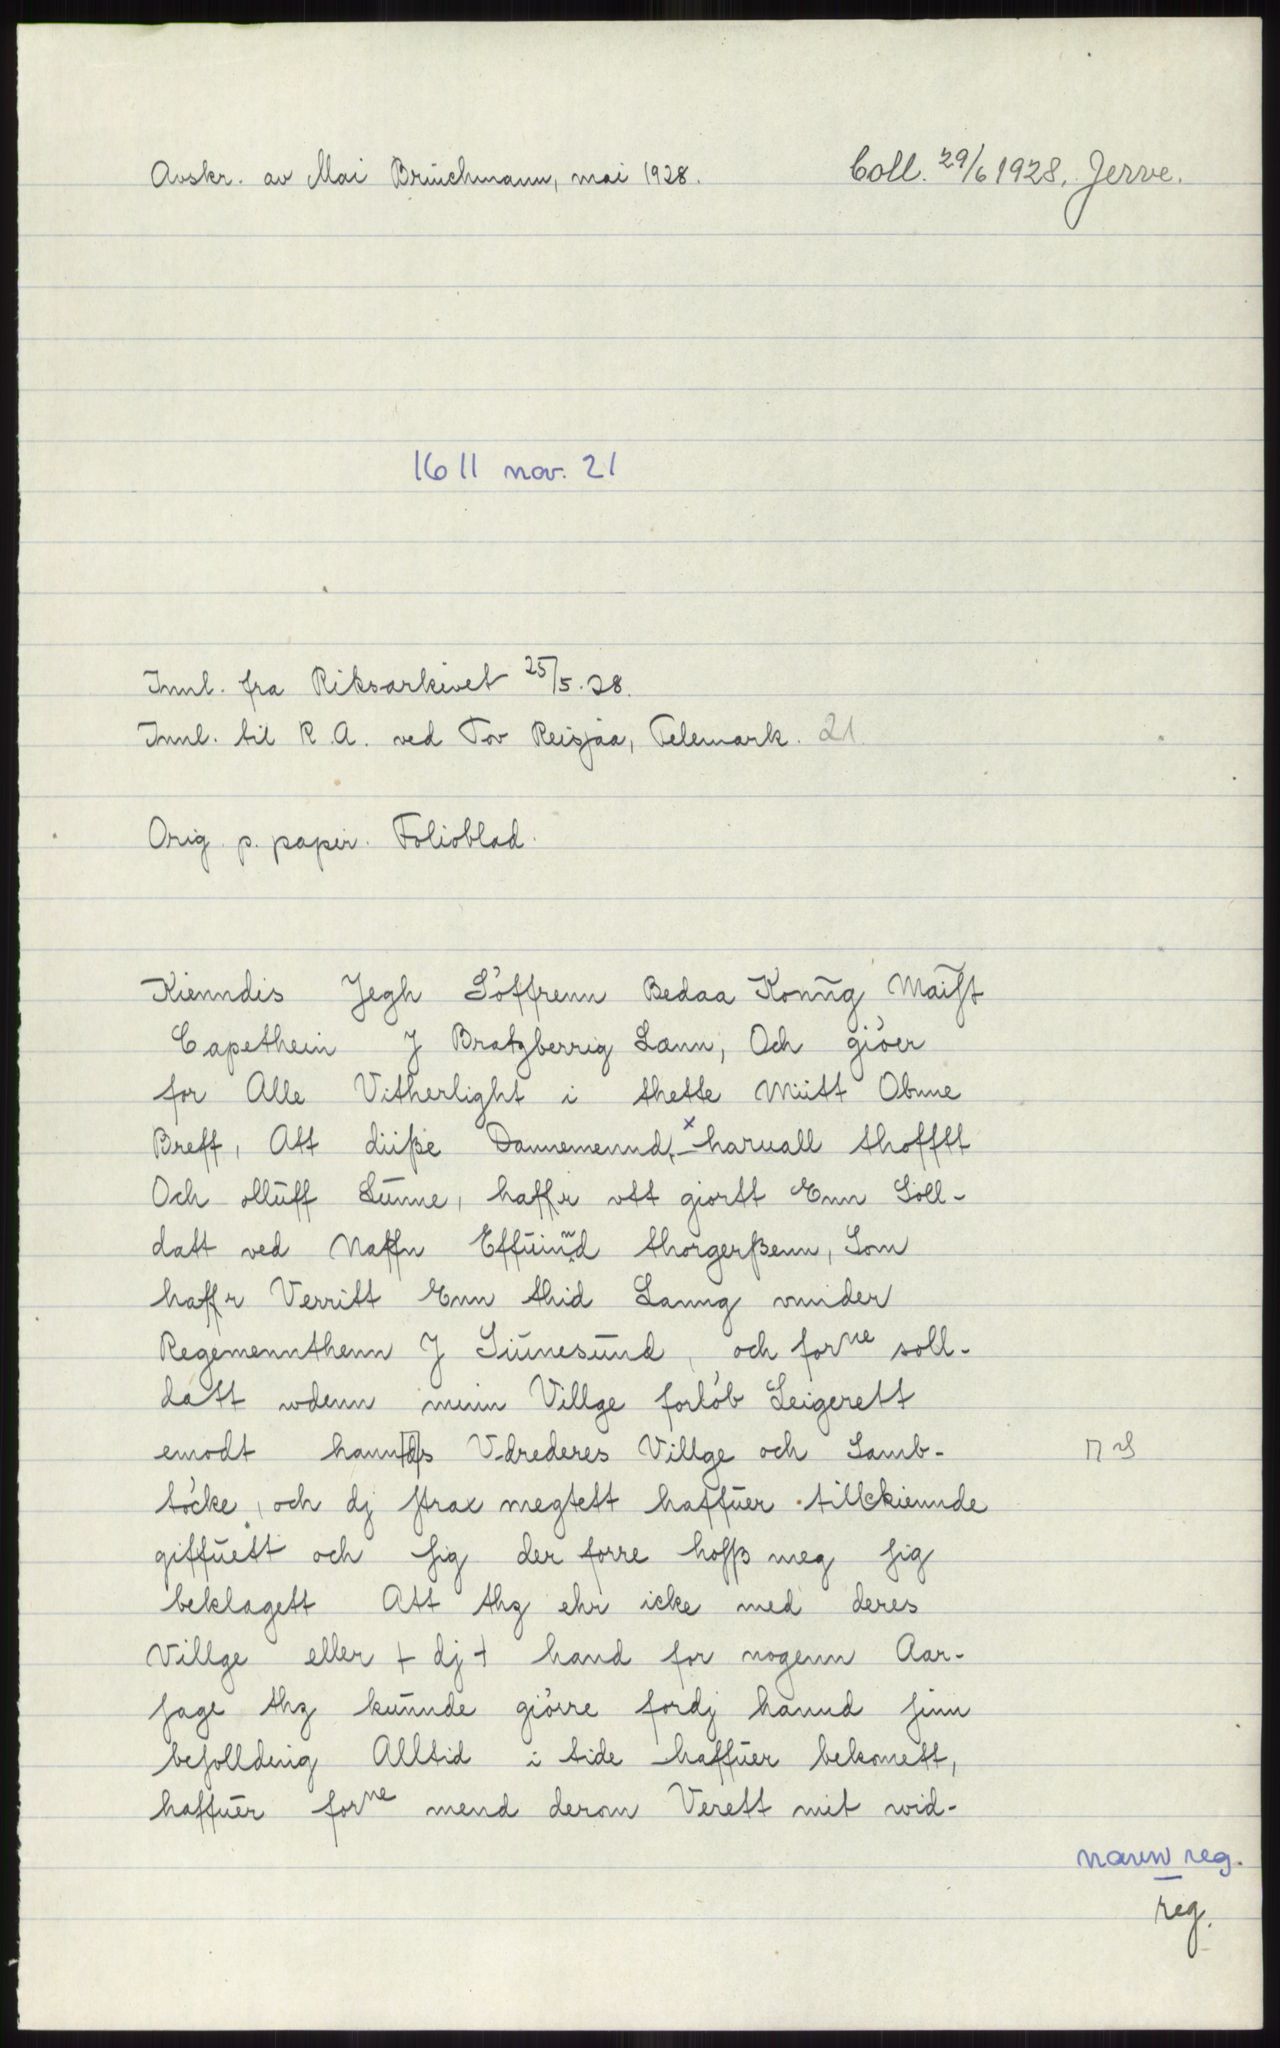 Avskr. av Mai Brüchmann, mai 1928. Coll. 29/6 1928, Jerve.
1611 nov. 21
Innl. fra Riksarkivet 25/5.28.
Innl. til R.A. ved Tov Reisjaa, Telemark. 21.
Orig. p. papir. Folioblad.
Kienndis Jegh Söffrenn Bedaa Konng Maist
Capethein J Bratzberrig Lænn, Och giöer
for Alle Vitherlight i thette Miitt Obnne
Breff, Att diiße Dannemennd, haruall thofftt
Och olluff Sunne, haffr vtt giortt Enn Soll-
datt ved Naffn Effuinnd thorgerßenn, Som
haffr Verritt Enn thid Lanng vnnder
Regemennthenn J Siunesund, och forne soll-
datt wdenn minn Villge forlöb Leigerett
emodt hann[d]s Vdrederes Villge och Samb-
töcke, och dj strax megtett haffuer tillkiennde
giffuett och sig der forre hoss meg sig
beklagett Att thz ehr icke med deres
Villge eller + dj + hand for nogenn Aar-
sage thz kunnde giörre fordj hannd sinn
besollding Alltid i tide haffuer bekomett,
haffuer forne mend derom Verett mit wid-
navnreg.
reg.